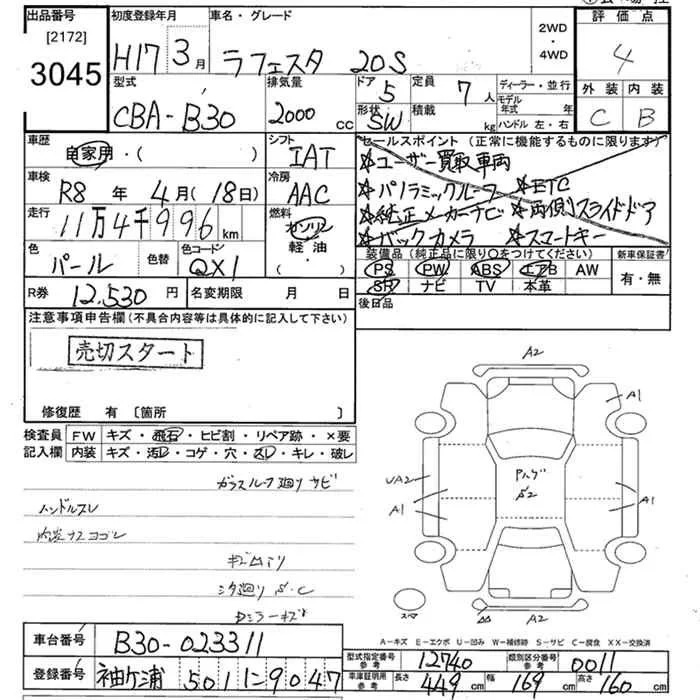 出品番号 初度登録年月 車名・グレード 2WD ・ 4WD 評価点
[2172]
3045 H17 3月 ラフェスタ 20S 4
型式 排気量 ドア 定員 ディーラー・並行 外装 内装
CBA-B30 2000 cc 5 7人 モデル年式 年
形状 積載 ハンドル 左・右 C B
SW kg
車歴 シフト セールスポイント(正常に機能するものに限ります)
自家用・( ) IAT ☆ユーザー買取車両
車検 冷房 ☆パノラミックルーフ ☆ETC
R8 年 4月(18日) AAC ☆純正メーカーナビ ☆両側スライドドア
走行 燃料 ☆バックカメラ ☆スマートキー
11万4千996km ガソリン
軽油
( ・ )
色 色替 色コード 装備品(純正品に限り○をつけてください) 新車保証書
パール QX1 PS PW ABS エアB AW 有・無
SR ナビ TV 本革
R券 12,530円 名変期限 月 日 後日品
注意事項申告欄(不具合内容等は具体的に記入して下さい)
売切スタート
修復歴 有〔箇所 〕
検査員記入欄 FW キズ・飛石・ヒビ割・リペア跡・×要
内装 キズ・汚レ・コゲ・穴・スレ・キレ・破レ
ガラスルーフ廻りサビ
ハンドルスレ
キズ
A2
A1
UA2
A1
A1
A2
スマ
A-キズ E-エクボ U-凹み W-補修跡 S-サビ C-腐食 XX-交換済
車台番号 B30-023311 型式指定番号 参考 12740 類別区分番号 参考 0011
登録番号 袖ケ浦 501 に 9047 車庫証明用 参考 長さ 449cm 幅 169cm 高さ 160cm